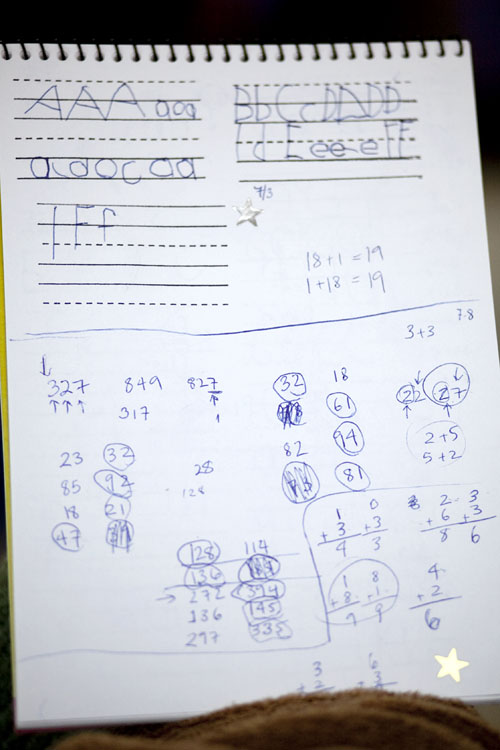 A A A a a a
B b C c D D D D
d E e e e F F
a a a c a a
7/3
F f
18 + 1 = 19
1 + 18 = 19
7.8
3 + 3
327 849 827 32 18 22 27
317 61
23 32 28 82 94 2+5
85 92 128 81 5+2
18 21
47
1 0 2 3
+3 +3 +6 +3
4 3 8 6
128 114
136
272 394
136 145
297 335
1 8 4
+8 +1 +2
9 9 6
3 6
+2 +3